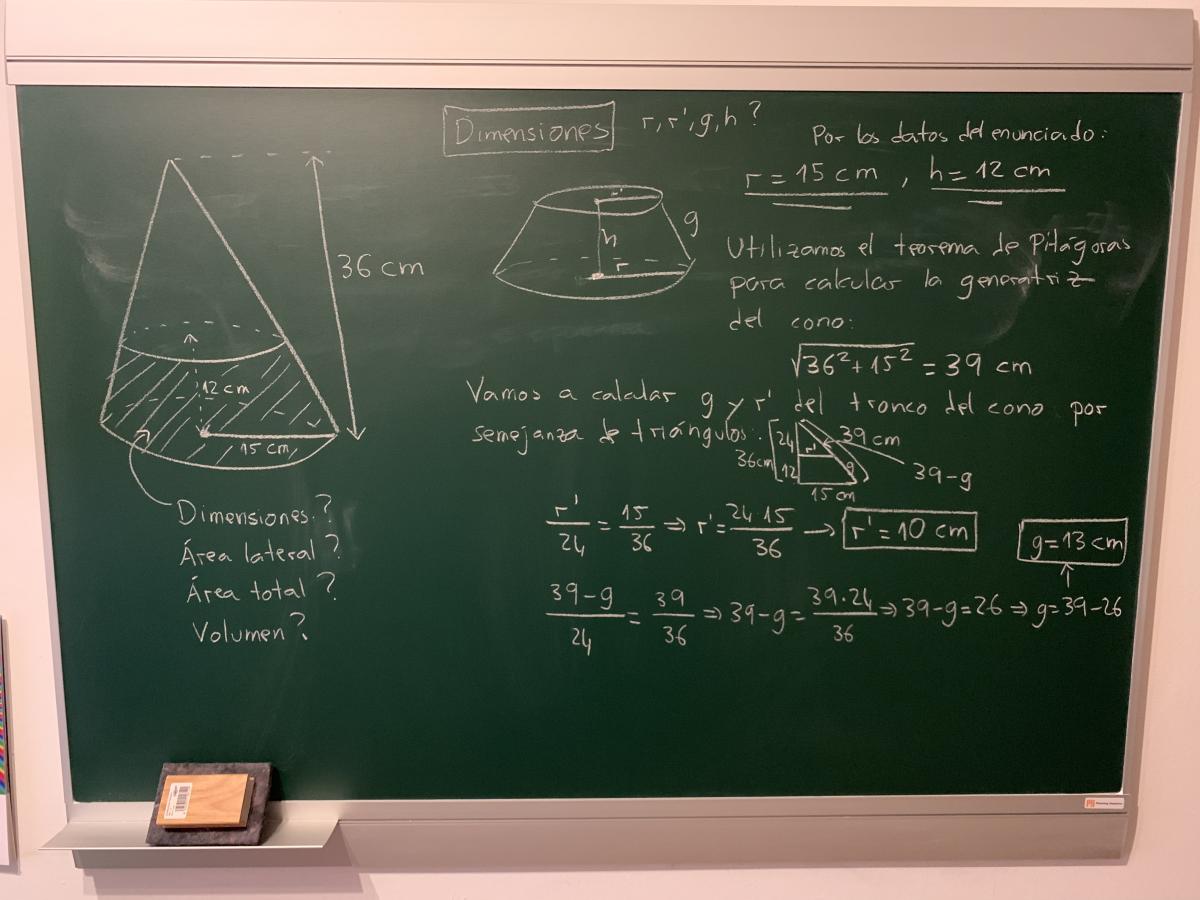 Dimensiones r, r', g, h?
Por los datos del enunciado:
r = 15 cm, h = 12 cm
36 cm
12 cm
15 cm
Dimensiones?
Área lateral?
Área total?
Volumen?
r'
h
g
r
Utilizamos el teorema de Pitágoras
para calcular la generatriz
del cono:
√36²+15² = 39 cm
Vamos a calcular g y r' del tronco del cono por
semejanza de triángulos:
36cm
24
12
r'
g
15 cm
39 cm
39-g
r'/24 = 15/36 ⇒ r' = 24·15/36 → r' = 10 cm
g = 13 cm
39-g/24 = 39/36 ⇒ 39-g = 39·24/36 ⇒ 39-g = 26 ⇒ g = 39-26